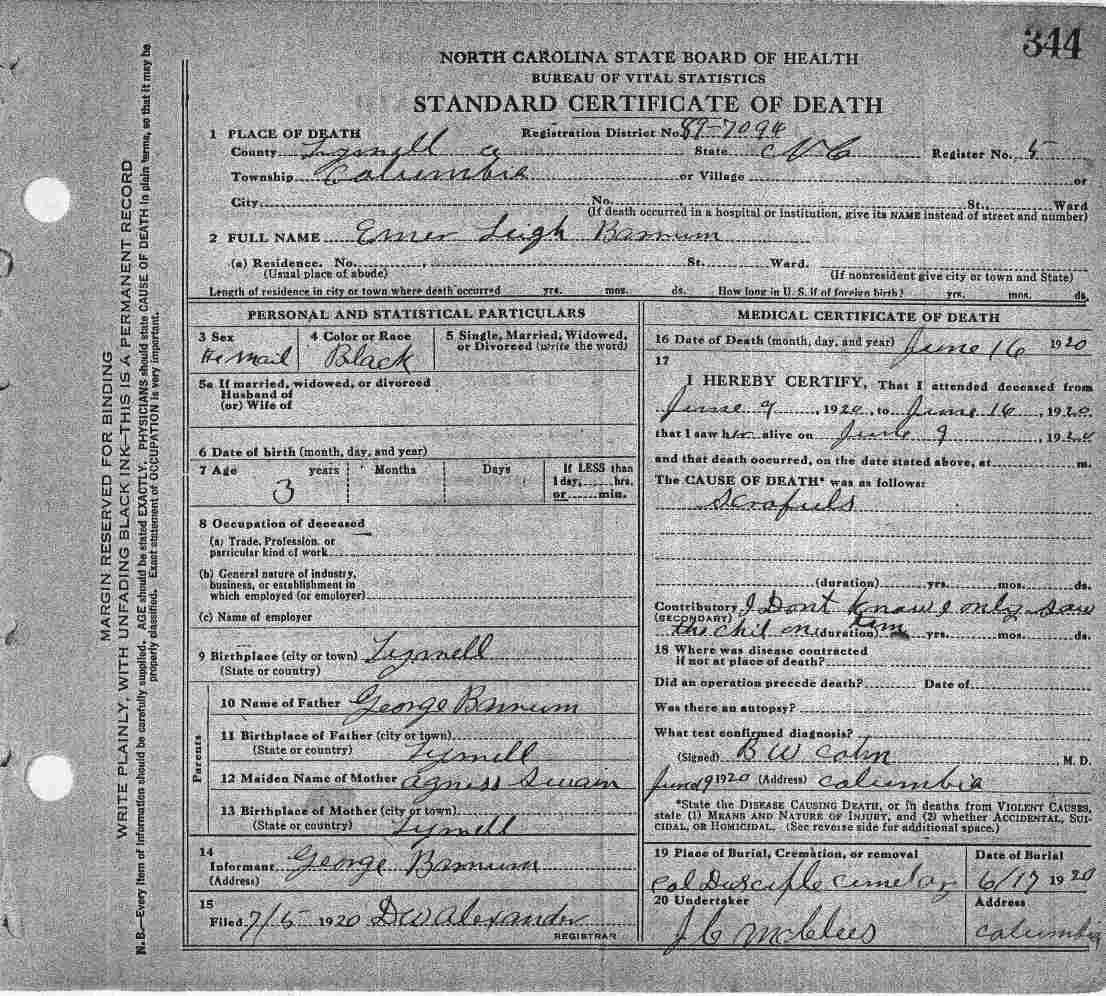 344
NORTH CAROLINA STATE BOARD OF HEALTH
BUREAU OF VITAL STATISTICS
STANDARD CERTIFICATE OF DEATH
1 PLACE OF DEATH Registration District No. 89-7094
County State N C Register No. 5
Township Columbia or Village or
City No. St., Ward
(If death occurred in a hospital or institution, give its NAME instead of street and number)
2 FULL NAME Leigh
(a) Residence. No. St. Ward.
(Usual place of abode) (If nonresident give city or town and State)
Length of residence in city or town where death occurred yrs. mos. ds. How long in U. S. if of foreign birth? yrs. mos. ds.
PERSONAL AND STATISTICAL PARTICULARS
3 Sex 4 Color or Race 5 Single, Married, Widowed,
or Divorced (write the word)
Black
5a If married, widowed, or divorced
Husband of
(or) Wife of
6 Date of birth (month, day, and year)
7 Age years Months Days If LESS than
1 day, hrs.
3 or min.
8 Occupation of deceased
(a) Trade, Profession, or
particular kind of work
(b) General nature of industry,
business, or establishment in
which employed (or employer)
(c) Name of employer
9 Birthplace (city or town)
(State or country)
Parents
10 Name of Father George
11 Birthplace of Father (city or town)
(State or country)
12 Maiden Name of Mother Agness Swain
13 Birthplace of Mother (city or town)
(State or country)
14
Informant George
(Address)
15
Filed 7/5 1920 D W Alexander
REGISTRAR
MEDICAL CERTIFICATE OF DEATH
16 Date of Death (month, day, and year) June 16 1920
17
I HEREBY CERTIFY, That I attended deceased from
June 9, 1920, to June 16, 1920
that I saw h alive on June 9, 1920
and that death occurred, on the date stated above, at m.
The CAUSE OF DEATH* was as follows:
(duration) yrs. mos. ds.
Contributory I Dont know I only saw
(SECONDARY) the chil on (duration) yrs. mos. ds.
18 Where was disease contracted
if not at place of death?
Did an operation precede death? Date of
Was there an autopsy?
What test confirmed diagnosis?
(Signed) B W M. D.
1920 (Address) Columbia
*State the DISEASE CAUSING DEATH, or in deaths from VIOLENT CAUSES,
state (1) MEANS AND NATURE OF INJURY, and (2) whether ACCIDENTAL, SUI-
CIDAL, OR HOMICIDAL. (See reverse side for additional space.)
19 Place of Burial, Cremation, or removal Date of Burial
Col 6/17 1920
20 Undertaker Address
J C McClees Columbia
MARGIN RESERVED FOR BINDING
WRITE PLAINLY, WITH UNFADING BLACK INK—THIS IS A PERMANENT RECORD
N. B.—Every item of information should be carefully supplied. AGE should be stated EXACTLY. PHYSICIANS should state CAUSE OF DEATH in plain terms, so that it may be
properly classified. Exact statement of OCCUPATION is very important.